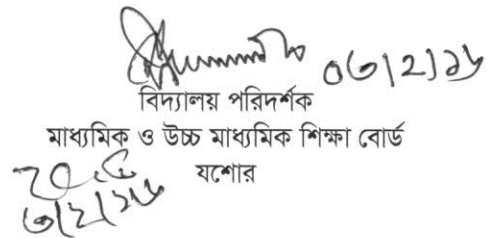 ০৩|২|১৬
বিদ্যালয় পরিদর্শক
মাধ্যমিক ও উচ্চ মাধ্যমিক শিক্ষা বোর্ড
যশোর
৩|২|১৬